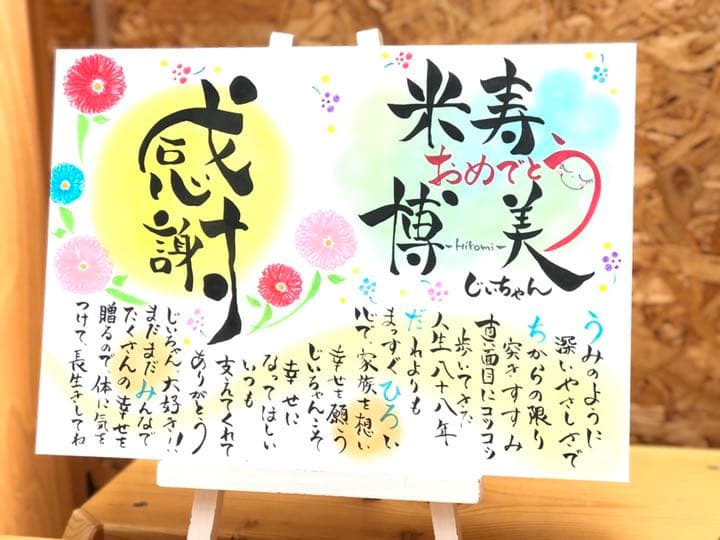 米寿
おめでとう
博美
-Hiromi-
じいちゃん
うみのように
深いやさしさで
ちからの限り
突きすすみ
真面目にコツコツ
歩いてきた
人生八十八年
だれよりも
まっすぐひろい
心で、家族を想い
幸せを願う
じいちゃんこそ
幸せに
なってほしい
いつも
支えてくれて
ありがとう
じいちゃん大好き!!
まだまだみんなで
たくさんの幸せを
贈るので体に気を
つけて、長生きしてね
感謝